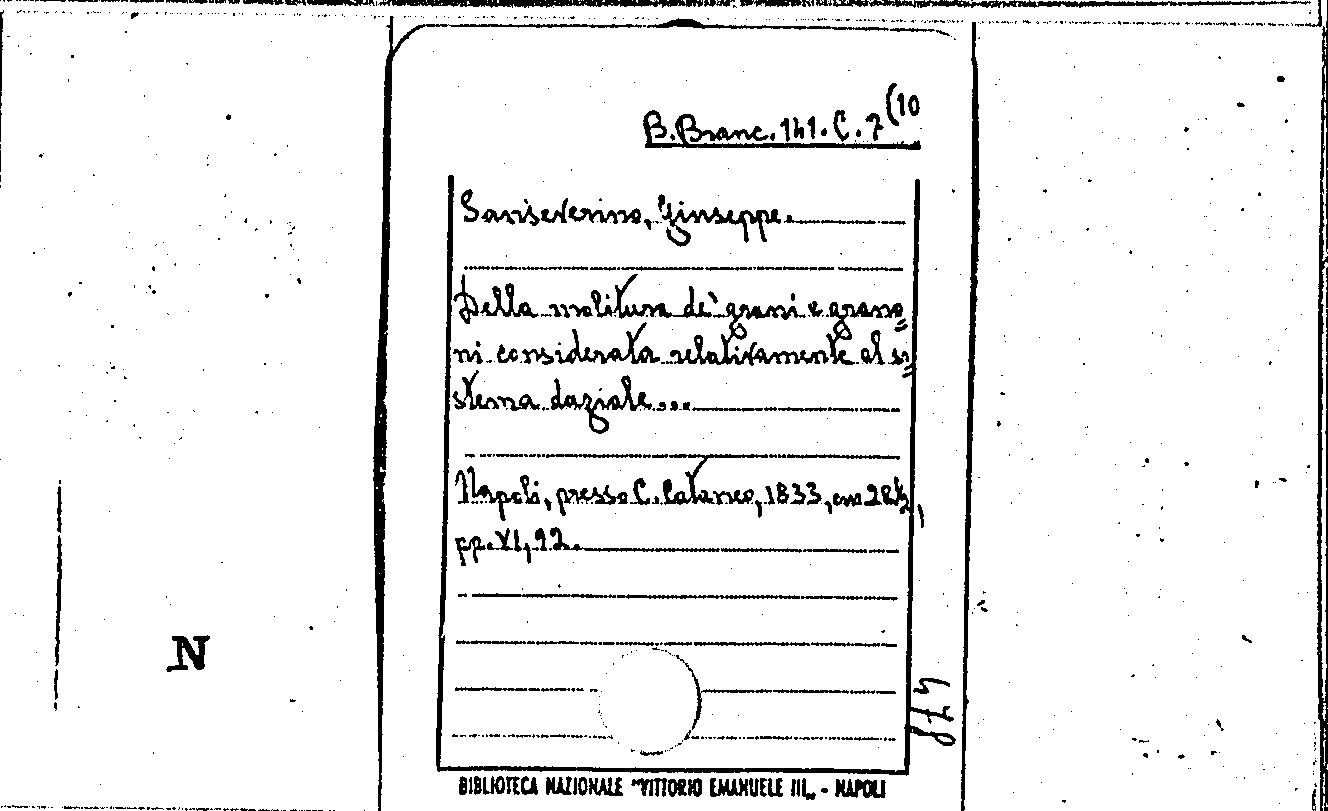 B. Branc. 141. C. 7 (10
Sanseverino, Giuseppe.
Della molitura de' grani e grano=
ni considerata relativamente al si=
stema daziale...
Napoli, presso C. Cataneo, 1833, cm 28½,
pp. XI, 92.
N
BIBLIOTECA NAZIONALE "VITTORIO EMANUELE III„ - NAPOLI